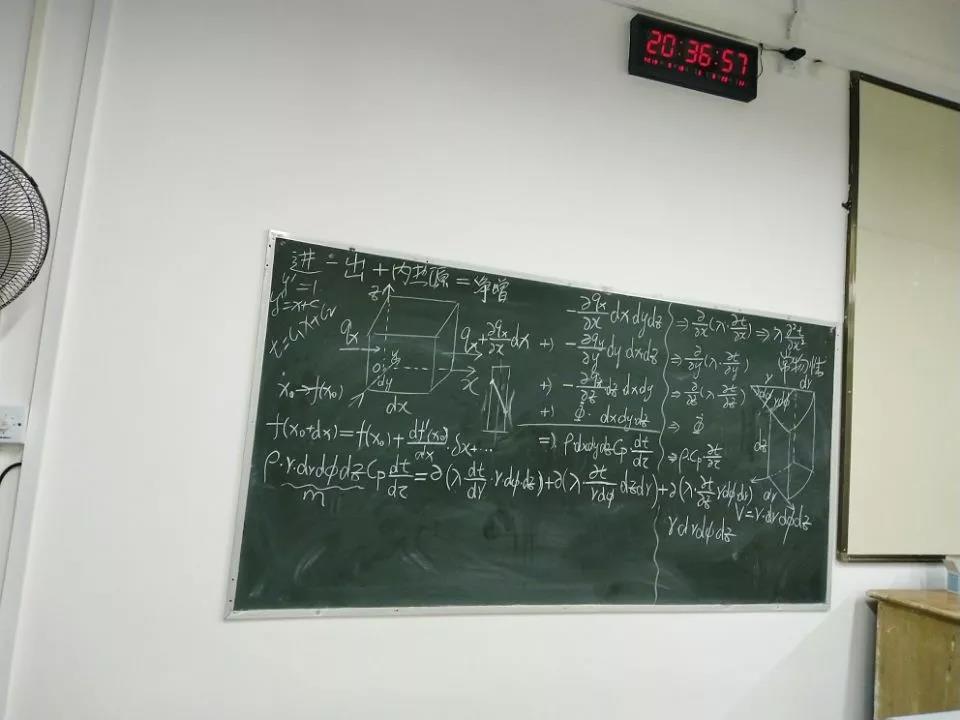 20:36:57
进-出+内热源=净增
y'=1
y=x+c
z
qx
qx+∂qx/∂x dx
y
0
x
dy
dx
x₀→f(x₀)
f(x₀+dx)=f(x₀)+df(x₀)/dx·δx+...
-∂qx/∂x dxdydz
+) -∂qy/∂y dy dxdz
+) -∂qz/∂z dz dxdy
+) Φ̇· dxdydz
=) ρdxdydzCp·∂t/∂τ
⇒∂/∂x(λ·∂t/∂x)⇒λ∂²t/∂x²
⇒∂/∂y(λ·∂t/∂y)
常物性
⇒∂/∂z(λ·∂t/∂z)
⇒ Φ̇
⇒ρ·Cp·∂t/∂τ
r
dr
rdφ
dz
dr
V=r·drdφdz
ρ·r·drdφdzCp dt/dτ=∂(λ dt/dr·r·dφ·dz)+∂(λ·∂t/rdφ dzdr)+∂(λ·∂t/∂z rdφdr)
m
rdrdφdz